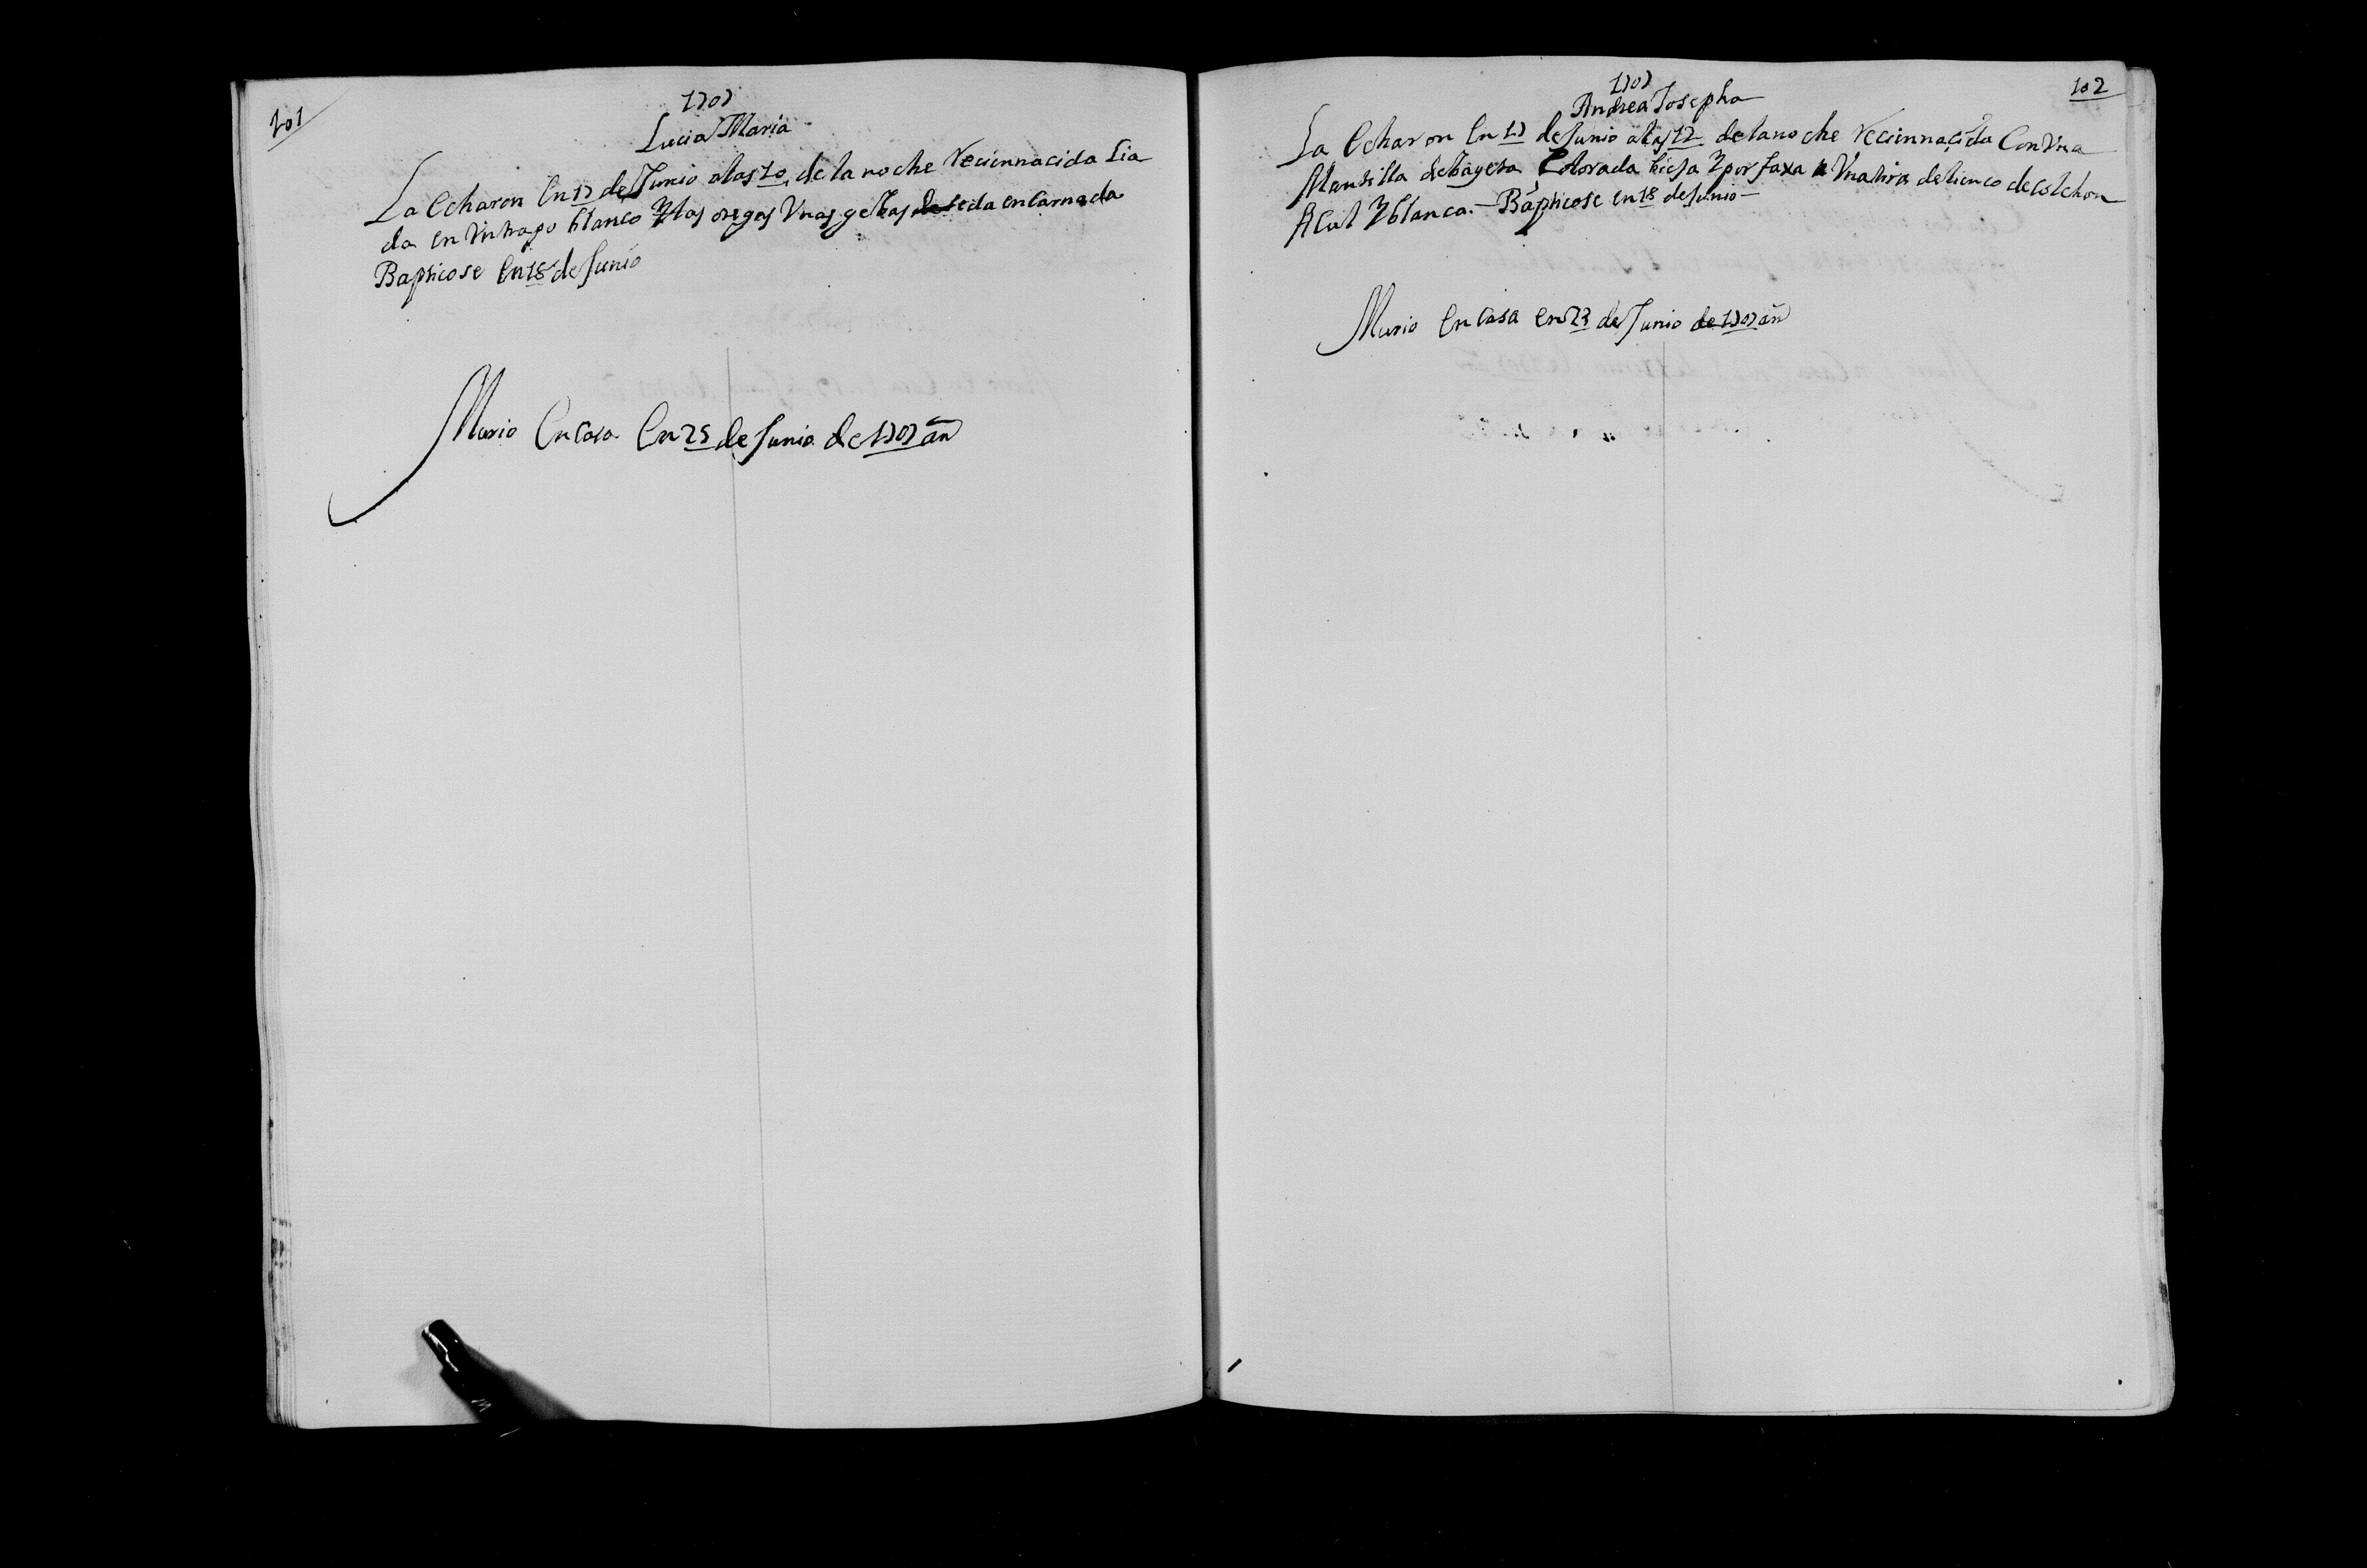 101
1707
Lucia Maria
La Echaron En 17 de Junio alas 10 de la noche Reciennacida Lia
da en Vntrapo blanco Ylas oregas Vnas
seda encarnada
Bapticose En 18 de Junio
Murio En Casa En 25 de Junio de 1707 añ
102
1707
Andrea Josepha
La Echaron En 17 de Junio alas 12 delanoche Reciennacida Con Vna
Mantilla debayeta Colorada bieja Ypor faxa Vnatira delienco de Colchon
Acul Yblanca. - Bapticose en 18 deJunio -
Murio En Casa En 23 de Junio de 1707 añ